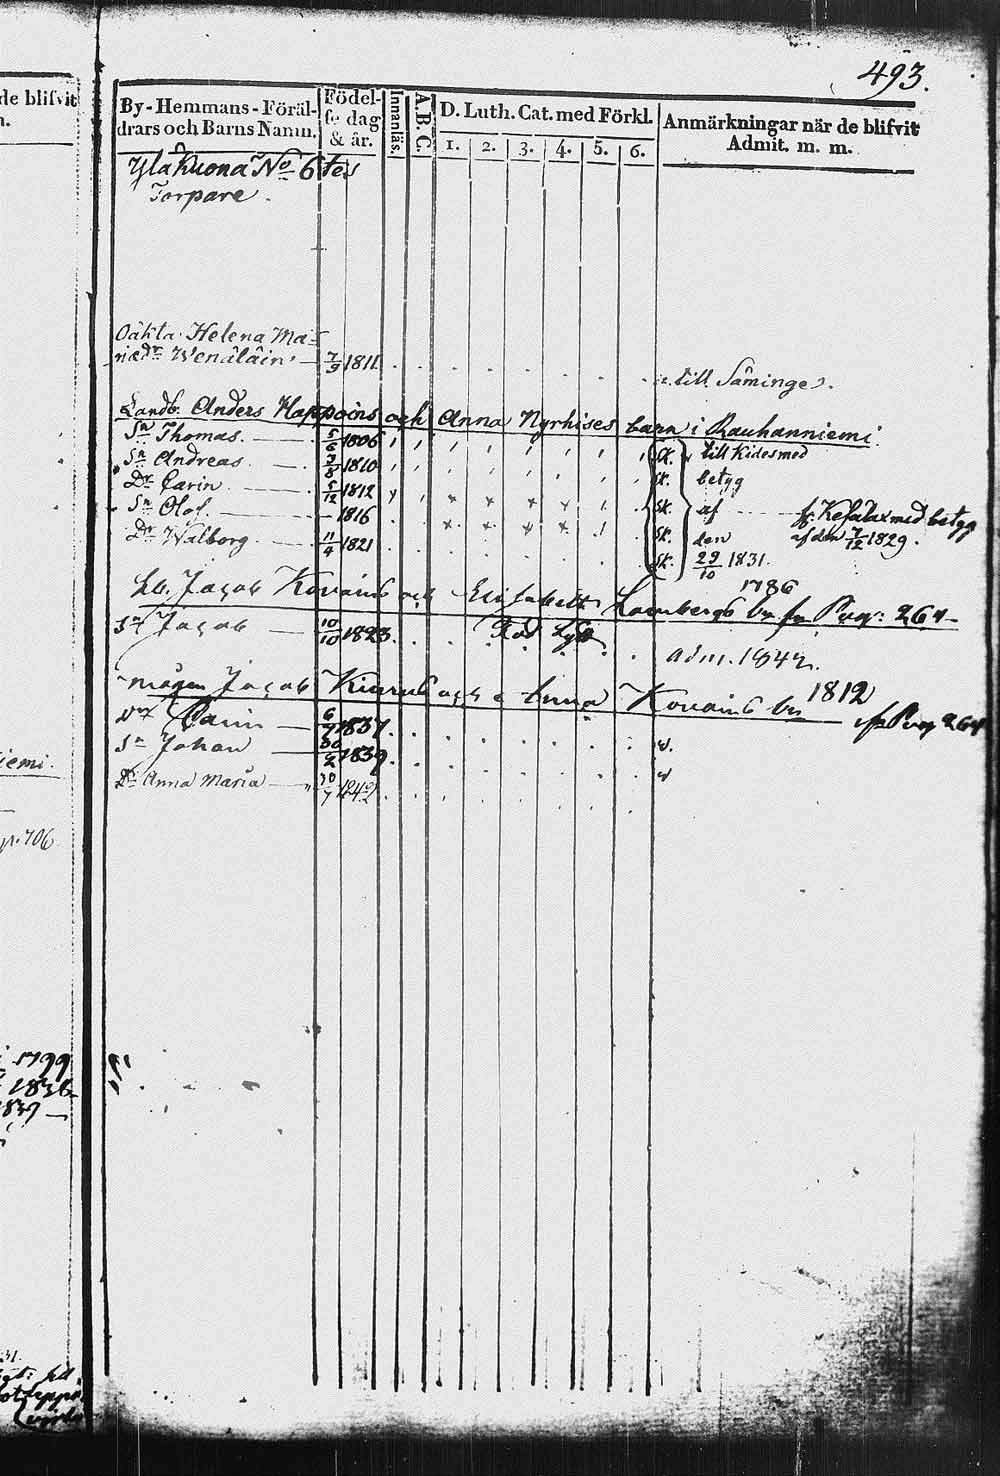 493.
de blifvit
By-Hemmans-Föräl-
drars och Barns Namn.
Födel-
se dag
& år.
Innanläs.
A.B.C.
D. Luth. Cat. med Förkl.
1. 2. 3. 4. 5. 6.
Anmärkningar när de blifvit
Admit. m. m.
Yläkuona No 6 tes
Torpare.
Oäkta Helena Ma-
riædr Wenäläin 7/9 1811
till Säminge.
Landb. Anders Happoins och Anna Nyrhises barn i Rauhanniemi
Sn Thomas. 5/6 1806 sk. till Kides med
Sn Andreas 9/8 1810 sk. betyg
Dr Carin 5/12 1812 sk. af fr Kesälax med betyg
Sn Olof 1816 sk. den af den 7/12 1829.
Dr Walborg 11/4 1821 sk. 29/10 1831.
1786
Lb. Jacob Kovains och Elisabeth Lombergs br fr Pag: 264
Sn Jacob 10/10 1823 Röd
adm. 1842.
mågen Jacob och Anna Kovains bn 1812
fr Pag 264
Dr Carin 6/7 1837
Sn Johan 30/2 1839 v.
Dr Anna Maria 30/7 1842 v
iemi.
706
1799
1836
1837